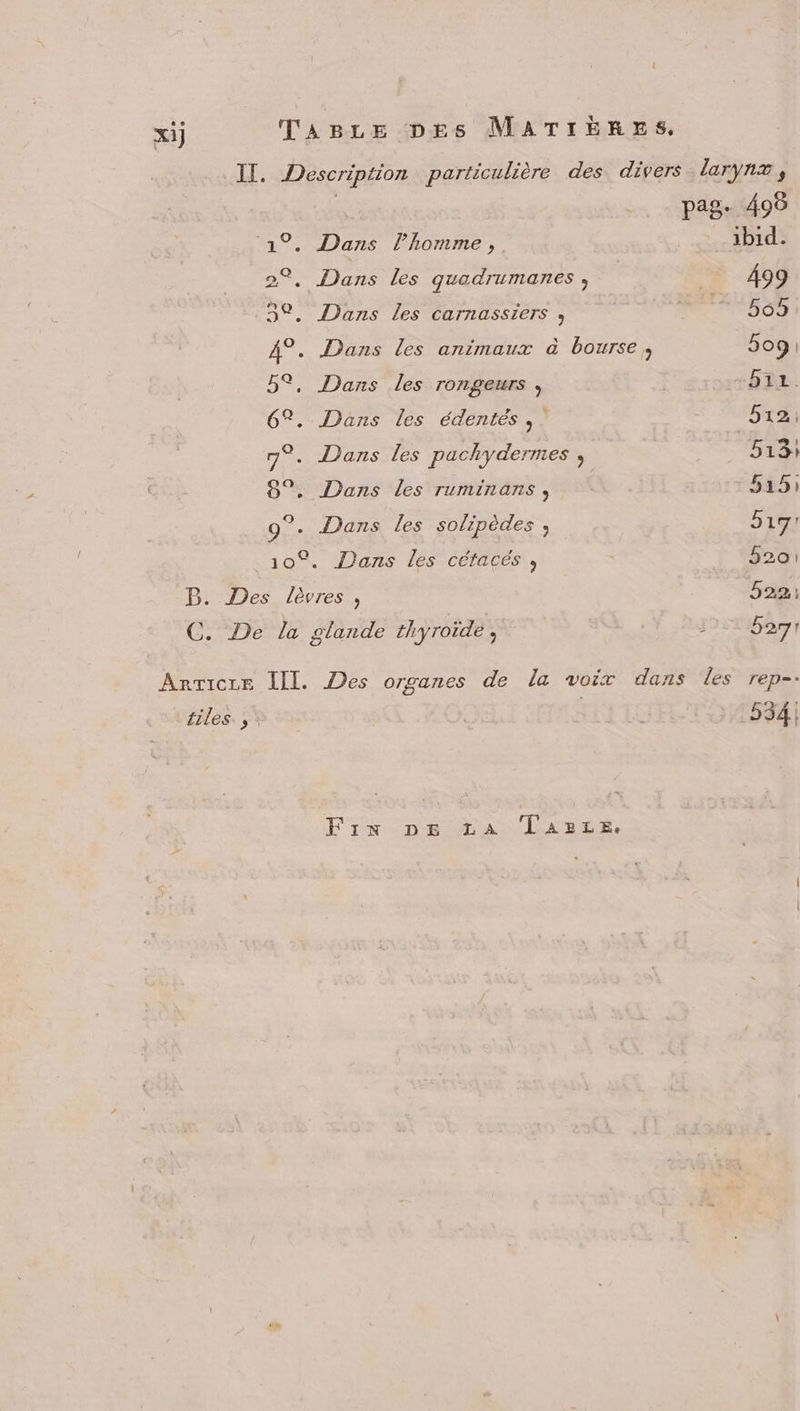 xij TABLE DES MATIÈRES.
II. Description particulière des divers larynx,
pag. 498
1°. Dans l'homme, ibid.
2°. Dans les quadrumanes, 499
3°. Dans les carnassiers, 505
4°. Dans les animaux à bourse, 509
5°. Dans les rongeurs, 511.
6°. Dans les édentés, 512
7°. Dans les pachydermes, 513
8°. Dans les ruminans, 515
9°. Dans les solipèdes, 517
10°. Dans les cétacés, 520
B. Des lèvres, 522
C. De la glande thyroïde, 527
ARTICLE III. Des organes de la voix dans les rep-
tiles, 534
FIN DE LA TABLE.